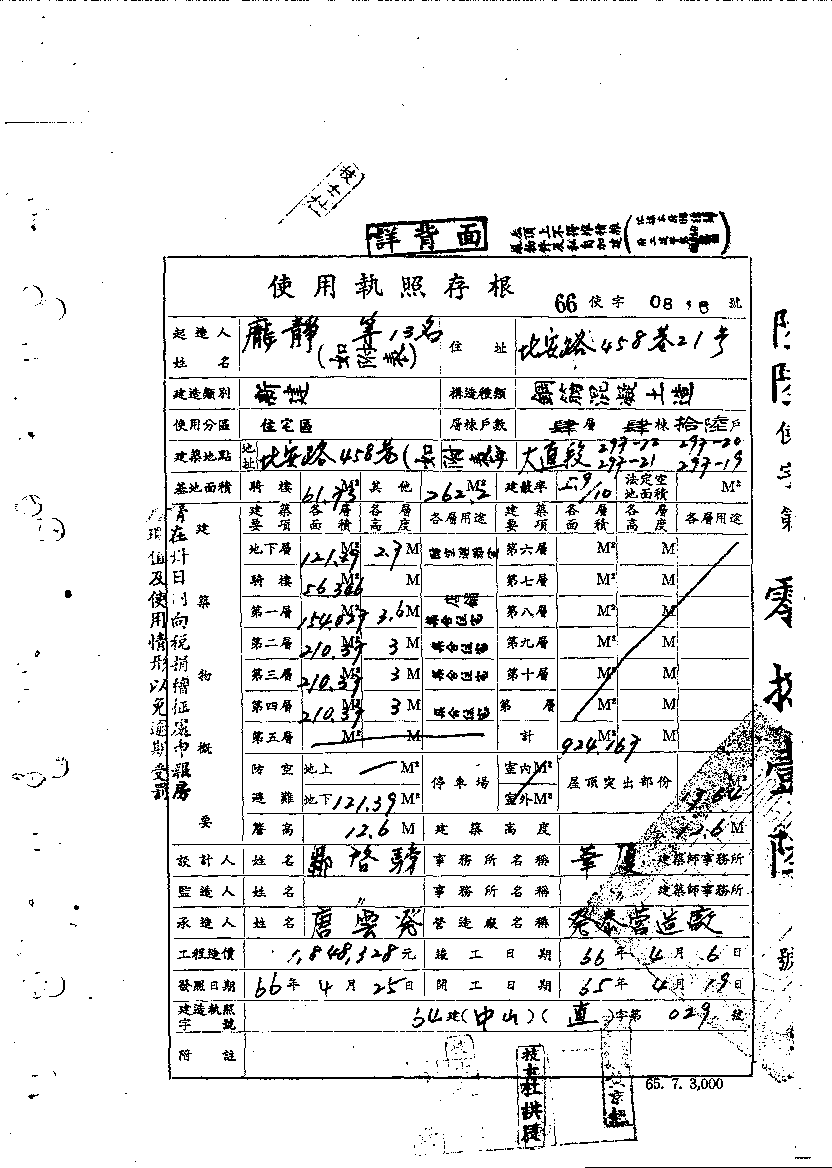 詳背面
使用執照存根
66 使字 08 號
起造人姓名 龐靜 等13名 (如附表) 住址 北安路458巷21号
建造類別 新建 構造種類 鋼筋混凝土造
使用分區 住宅區 層棟戶數 肆層 肆棟 拾陸戶
建築地點 地址 北安路458巷( 大直段 297-12 297-20 297-21 297-19
基地面積 騎樓 61.73 M² 其他 262.2 M² 建蔽率 5.9/10 法定空地面積 M²
建築物概要
建築要項 各層面積 各層高度 各層用途 建築要項 各層面積 各層高度 各層用途
地下層 121.39 M² 2.7 M 第六層 M² M
騎樓 56.366 M² M 第七層 M² M
第一層 154.027 M² 3.6 M 第八層 M² M
第二層 210.39 M² 3 M 集合住宅 第九層 M² M
第三層 210.39 M² 3 M 集合住宅 第十層 M² M
第四層 210.39 M² 3 M 集合住宅 第 層 M² M
第五層 M² M 計 924.167 M² M
防空避難 地上 M² 停車場 室內M² 屋頂突出部份 M²
地下 121.39 M² 室外M²
簷高 12.6 M 建築高度 12.6 M
設計人 姓名 事務所名稱 華廈 建築師事務所
監造人 姓名 〃 事務所名稱 建築師事務所
承造人 姓名 唐雲発 營造廠名稱 発泰營造廠
工程造價 1,848,328元 竣工日期 66年4月6日
發照日期 66年4月25日 開工日期 65年4月19日
建造執照字號 64建(中山)(直)字第 029 號
附註
65. 7. 3,000
使字第
零
號